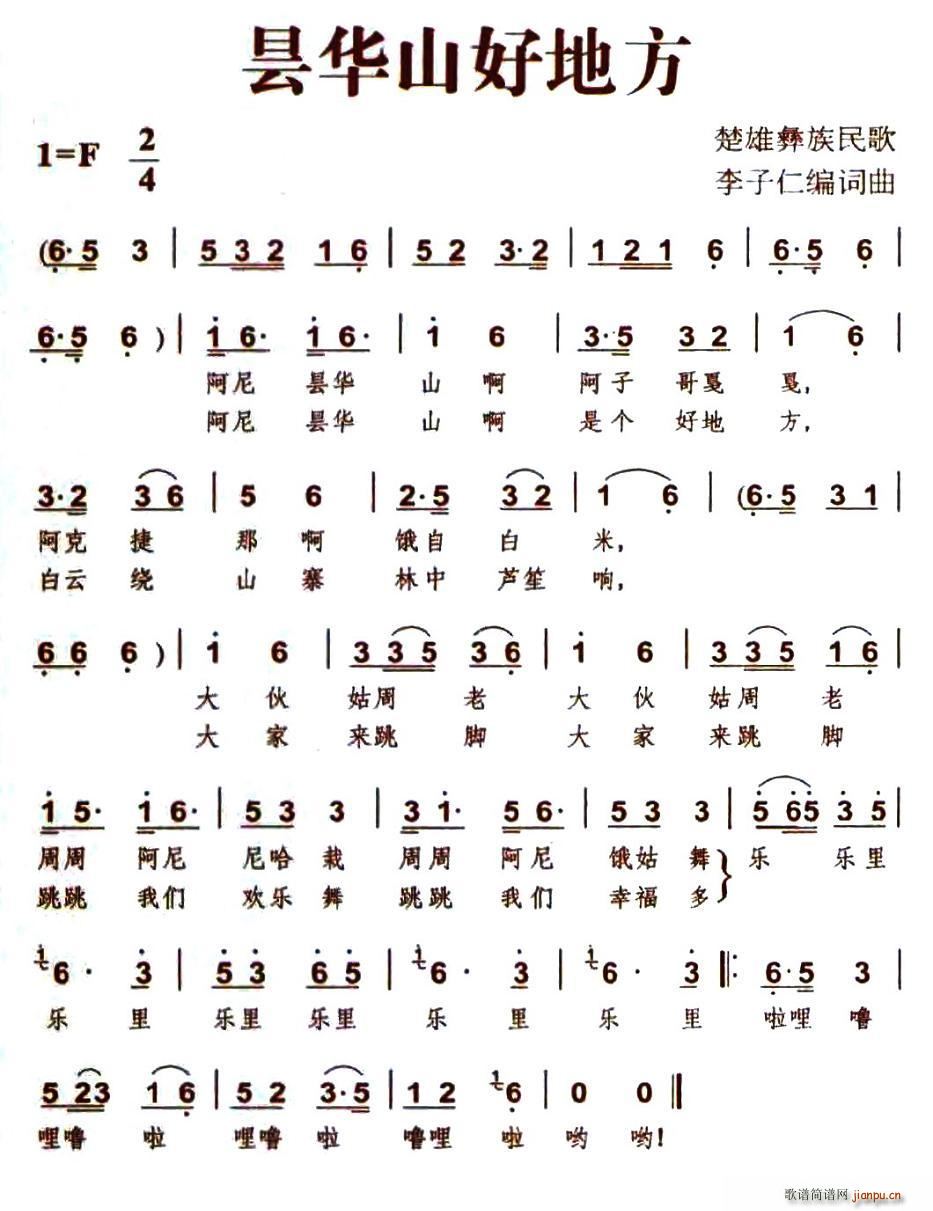 昙华山好地方
1=F 2/4
楚雄彝族民歌
李子仁编词曲
(6·5 3 | 5 3 2 1 6 | 5 2 3·2 | 1 2 1 6 | 6·5 6 |
6·5 6 ) | 1 6· 1 6· | 1 6 | 3·5 3 2 | 1 6 |
阿尼 昙华 山 啊 阿子 哥戛 戛,
阿尼 昙华 山 啊 是个 好地 方,
3·2 3 6 | 5 6 | 2·5 3 2 | 1 6 | (6·5 3 1 |
阿克 捷 那 啊 饿自 白 米,
白云 绕 山 寨 林中 芦笙 响,
6 6 6 ) | 1 6 | 3 3 5 3 6 | 1 6 | 3 3 5 1 6 |
大 伙 姑周 老 大 伙 姑周 老
大 家 来跳 脚 大 家 来跳 脚
1 5· 1 6· | 5 3 3 | 3 1· 5 6· | 5 3 3 | 5 6 5 3 5 |
周周 阿尼 尼哈 栽 周周 阿尼 饿姑 舞} 乐 乐里
跳跳 我们 欢乐 舞 跳跳 我们 幸福 多
1 6· 3 | 5 3 6 5 | 1 6· 3 | 1 6· 3 ‖: 6·5 3 |
乐 里 乐里 乐里 乐 里 乐 里 啦哩 噜
5 2 3 1 6 | 5 2 3·5 | 1 2 1 6 | 0 0 ‖
哩噜 啦 哩噜 啦 噜哩 啦 哟 哟!
歌谱简谱网 jianpu.cn